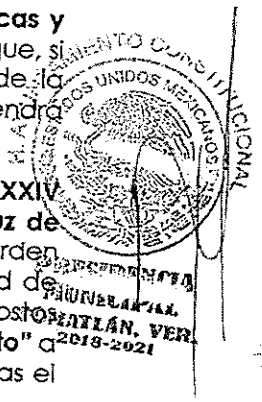 cas y
que, si
de la
endrá
XXIV
uz de
rden
d de
osto
to" a
as el
H. AYUNTAMIENTO CONSTITUCIONAL
ESTADOS UNIDOS MEXICANOS
PRESIDENCIA
MUNICIPAL
VER.
2018-2021